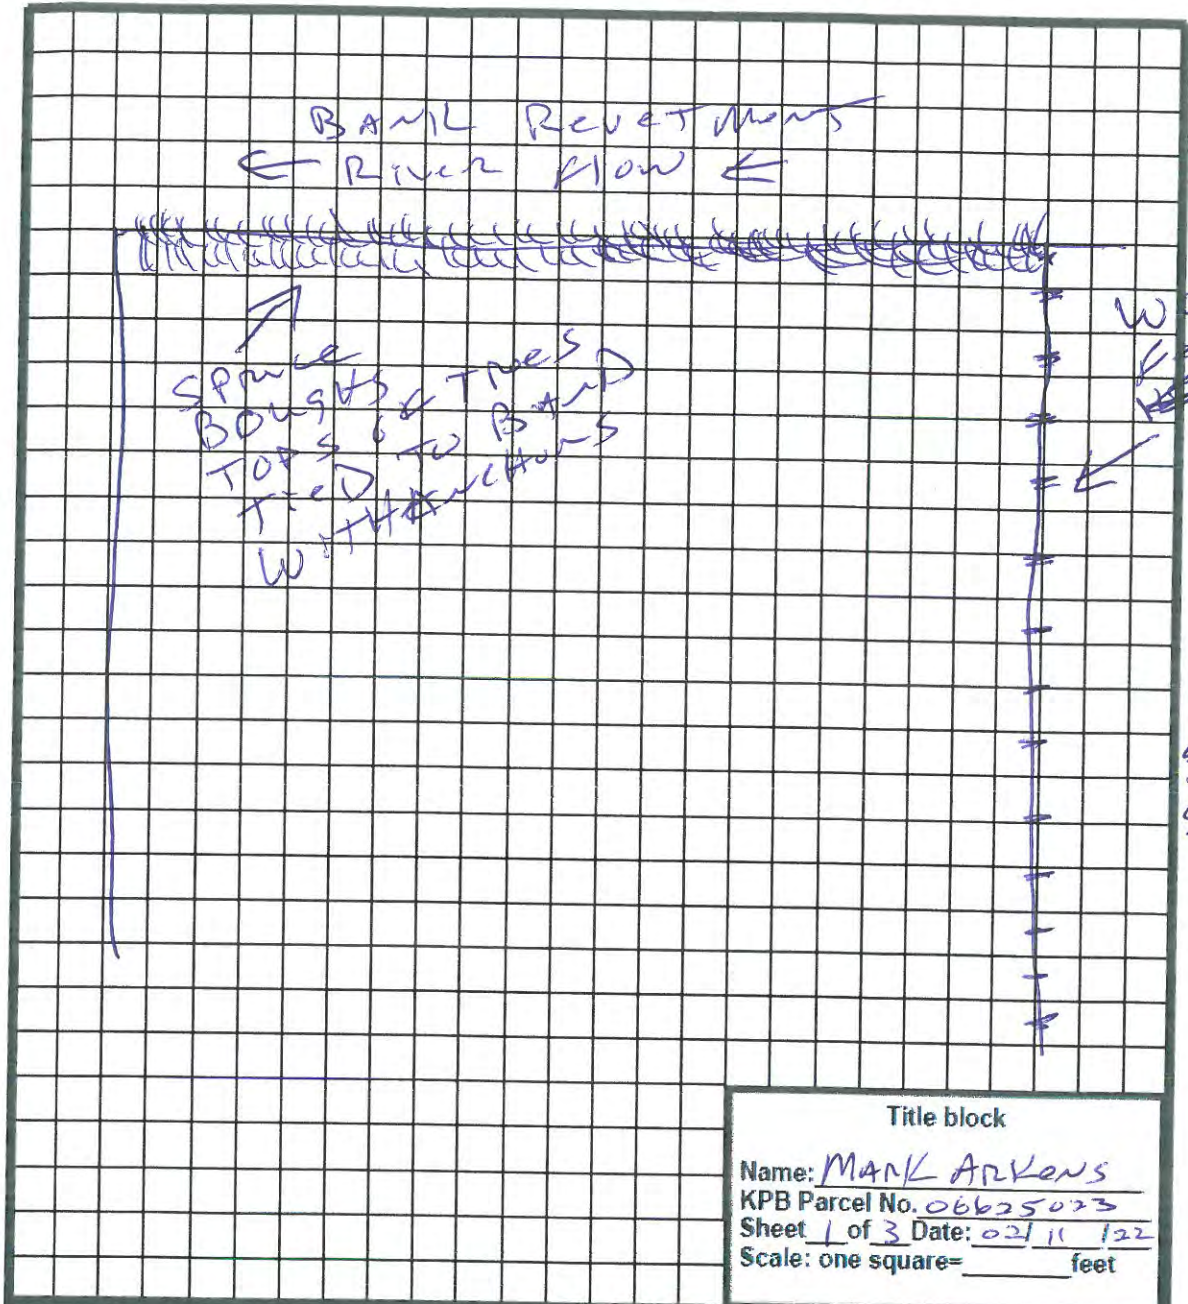 BANK Revetment
← River Flow ←
SPruce
BOughts
TOPS of Trees
TieD TO BanD
WITH Anchors
W
Title block
Name: MARK ARKens
KPB Parcel No. 06625023
Sheet 1 of 3 Date: 02/ 11 /22
Scale: one square=______feet